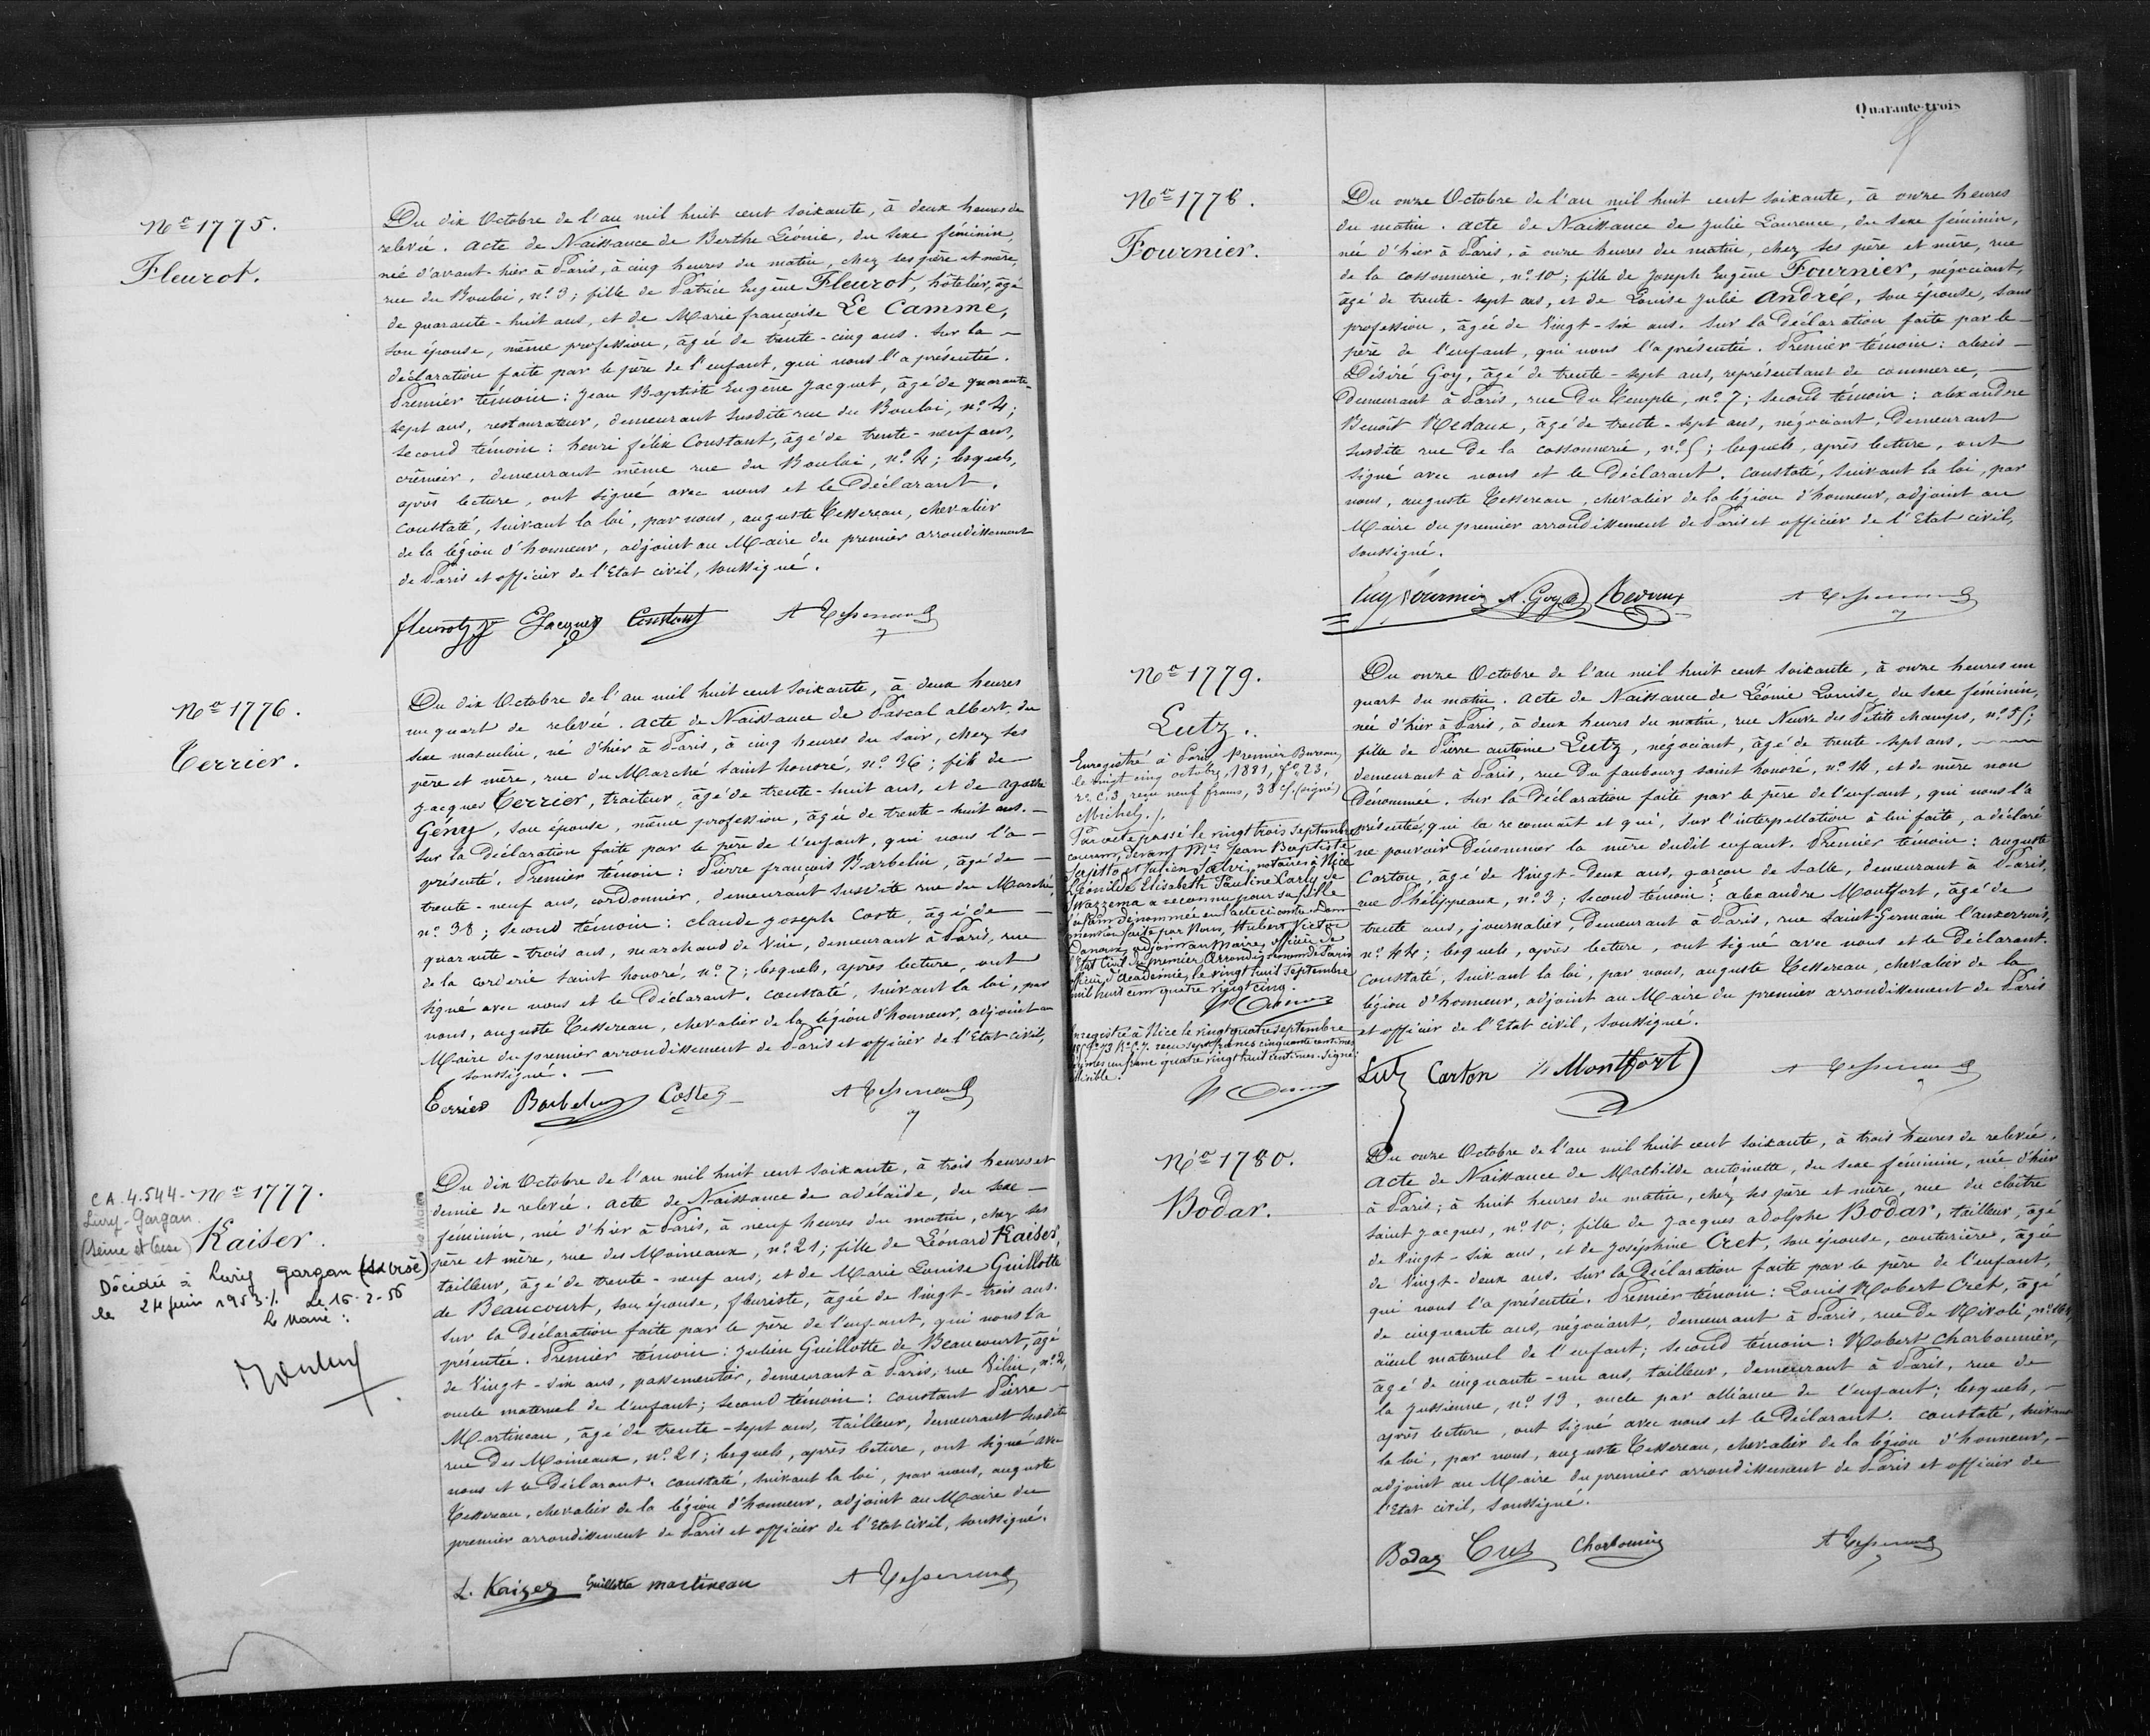 Nº 1775.
Fleurot.
Du dix Octobre de l'an mil huit cent soixante, à deux heures de
relevée. acte de Naissance de Berthe Léonie, du sexe féminin,
née d'avant-hier à Paris, à cinq heures du matin, chez ses père et mère,
rue du Bouloi, nº 3; fille de Patrice Eugène Fleurot, hôtelier, âgé
de quarante-huit ans, et de Marie françoise Le Camme,
son épouse, même profession, âgée de trente-cinq ans. Sur la
déclaration faite par le père de l'enfant, qui nous l'a présentée.
Premier témoin: Jean Baptiste Eugène Jacquet, âgé de quarante-
sept ans, restaurateur, demeurant susdite rue du Bouloi, nº 4;
second témoin: henri félix Constant, âgé de trente-neuf ans,
crêmier, demeurant même rue du Bouloi, nº 4; lesquels,
après lecture, ont signé avec nous et le Déclarant.
Constaté, suivant la loi, par nous, auguste Tessereau, chevalier
de la légion d'honneur, adjoint au Maire du premier arrondissement
de Paris et officier de l'Etat civil, soussigné.
fleurot Jacquet Constant A Tessereau
Nº 1776.
Terrier.
Du dix Octobre de l'an mil huit cent soixante, à deux heures
un quart de relevée. acte de Naissance de Pascal albert, du
sexe masculin, né d'hier à Paris, à cinq heures du soir, chez ses
père et mère, rue du Marché saint honoré, nº 36; fils de
Jacques Terrier, traiteur, âgé de trente-huit ans, et de agathe
Gény, son épouse, même profession, âgée de trente-huit ans.
Sur la Déclaration faite par le père de l'enfant, qui nous l'a
présenté. Premier témoin: Pierre françois Barbelin, âgé de
trente-neuf ans, cordonnier, demeurant susdite rue du Marché,
nº 38; second témoin: claude Joseph Coste, âgé de
quarante-trois ans, marchand de vin, demeurant à Paris, rue
de la corderie saint honoré, nº 7; lesquels, après lecture, ont
signé avec nous et le Déclarant. Constaté, suivant la loi, par
nous, auguste Tessereau, chevalier de la légion d'honneur, adjoint au
Maire du premier arrondissement de Paris et officier de l'Etat civil,
soussigné.
Terrier Barbelin Coste A Tessereau
C.A. 4.544 - Nº 1777.
Livry-Gargan
(Seine et Oise) Kaiser.
Décédée à Livry Gargan
le 24 juin 1953 ./. Le 16-2-56
Le Maire:
Du dix Octobre de l'an mil huit cent soixante, à trois heures et
demie de relevée. acte de Naissance de adélaïde, du sexe
féminin, née d'hier à Paris, à neuf heures du matin, chez ses
père et mère, rue des Moineaux, nº 21; fille de Léonard Kaiser,
tailleur, âgé de trente-neuf ans, et de Marie Louise Guillotte
de Beaucourt, son épouse, fleuriste, âgée de vingt-trois ans.
Sur la Déclaration faite par le père de l'enfant, qui nous l'a
présentée. Premier témoin: Julien Guillotte de Beaucourt, âgé
de vingt-six ans, passementier, demeurant à Paris, rue Vilin, nº 2,
oncle maternel de l'enfant; second témoin: Constant Pierre
Martineau, âgé de trente-sept ans, tailleur, demeurant susdite
rue des Moineaux, nº 21; lesquels, après lecture, ont signé avec
nous et le Déclarant. Constaté, suivant la loi, par nous, auguste
Tessereau, chevalier de la légion d'honneur, adjoint au Maire du
premier arrondissement de Paris et officier de l'Etat civil, soussigné.
L. Kaizer Guillotte martineau A Tessereau
Quarante-trois
Nº 1778.
Fournier.
Du onze Octobre de l'an mil huit cent soixante, à onze heures
du matin. acte de Naissance de Julie Laurence, du sexe féminin,
née d'hier à Paris, à onze heures du matin, chez ses père et mère, rue
de la cossonnerie, nº 10; fille de Joseph Eugène Fournier, négociant,
âgé de trente-sept ans, et de Louise Julie André, son épouse, sans
profession, âgée de vingt-six ans. Sur la Déclaration faite par le
père de l'enfant, qui nous l'a présentée. Premier témoin: alexis
Désiré Goy, âgé de trente-sept ans, représentant de commerce,
demeurant à Paris, rue du Temple, nº 7; second témoin: alexandre
Benoît Redaux, âgé de trente-sept ans, négociant, demeurant
susdite rue De la cossonnerie, nº 5; lesquels, après lecture, ont
signé avec nous et le Déclarant. Constaté, suivant la loi, par
nous, auguste Tessereau, chevalier de la légion d'honneur, adjoint au
Maire du premier arrondissement de Paris et officier de l'Etat civil,
soussigné.
Eug Fournier A. Goy Redaux A Tessereau
Nº 1779.
Lutz.
Enregistré à Paris, Premier Bureau,
le vingt cinq octobre 1881, fº 23,
rº C. 3, reçu neuf francs, 38 c/. (signé)
Michel ./.
Par acte passé le vingt trois septembre
courant, devant Mes Jean Baptiste
Sajetto et Julien Salvi, notaires à Nice
Léonilde Elisabeth Pauline Carly de
Swazzema a reconnu pour sa fille
l'enfant dénommée en l'acte ci contre. Dont
mention faite par Nous, Hubert Victor
adjoint au Maire, officier de
l'état civil du premier Arrondissement de Paris
officier d'Académie, le vingt huit Septembre
mil huit cent quatre vingt cinq.
Enregistré à Nice le vingt quatre septembre
1885 fº 73 Rº C. 7. reçu sept francs cinquante centimes
décimes un franc quatre vingt huit centimes. Signé:
illisible.
Du onze Octobre de l'an mil huit cent soixante, à onze heures un
quart du matin. acte de Naissance de Léonie Louise, du sexe féminin,
née d'hier à Paris, à deux heures du matin, rue Neuve des Petits champs, nº 35;
fille de Pierre antoine Lutz, négociant, âgé de trente-sept ans,
demeurant à Paris, rue Du faubourg saint honoré, nº 14, et de mère non
Dénommée. Sur la Déclaration faite par le père de l'enfant, qui nous l'a
présentée, qui la reconnaît et qui, sur l'interpellation à lui faite, a déclaré
ne pouvoir Dénommer la mère dudit enfant. Premier témoin: auguste
Carton, âgé de vingt-deux ans, garçon de salle, demeurant à Paris,
rue Phélippeaux, nº 3; second témoin: alexandre Montfort, âgé de
trente ans, journalier, demeurant à Paris, rue Saint-Germain l'auxerrois,
nº 44; lesquels, après lecture, ont signé avec nous et le Déclarant.
Constaté, suivant la loi, par nous, auguste Tessereau, chevalier de la
légion d'honneur, adjoint au Maire du premier arrondissement de Paris
et officier de l'Etat civil, soussigné.
Lutz Carton Montfort A Tessereau
Nº 1780.
Bodar.
Du onze Octobre de l'an mil huit cent soixante, à trois heures de relevée.
Acte de Naissance de Mathilde antoinette, du sexe féminin, née d'hier
à Paris, à huit heures du matin, chez ses père et mère, rue du cloître
saint Jacques, nº 10; fille de Jacques adolphe Bodar, tailleur, âgé
de vingt-six ans, et de Joséphine Cret, son épouse, couturière, âgée
de vingt-deux ans. Sur la Déclaration faite par le père de l'enfant,
qui nous l'a présentée. Premier témoin: Louis Robert Cret, âgé
de cinquante ans, négociant, demeurant à Paris, rue De Rivoli, nº 164,
aïeul maternel de l'enfant; second témoin: Robert Charbonnier,
âgé de cinquante-un ans, tailleur, demeurant à Paris, rue de
la jussienne, nº 13, oncle par alliance de l'enfant; lesquels,
après lecture, ont signé avec nous et le Déclarant. Constaté, suivant
la loi, par nous, auguste Tessereau, chevalier de la légion d'honneur,
adjoint au Maire du premier arrondissement de Paris et officier de
l'Etat civil, soussigné.
Bodar Cret Charbonnier A Tessereau